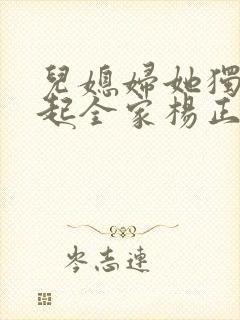 兒媳婦她獨
起全家楊正
岑志連